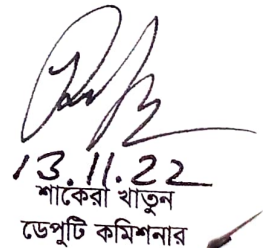 13.11.22
শাকেরা খাতুন
ডেপুটি কমিশনার